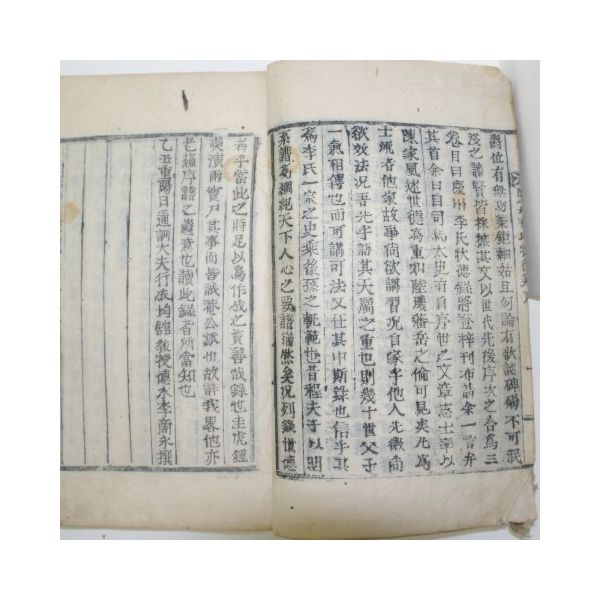 爵位有無功業鉅細姑且勿論有狀誌碑碣不可泯
沒之諸賢皆採摭其文以世代先後序次之合爲三
卷目曰慶州李氏狀德錄將登梓刊布請余一言弁
其首余曰自司馬太史有自序世之文章志士率以
陳家風述世德爲重如陸機潘岳之倫可見矣凡爲
士類者他家故事尚欲講習況自家乎他人先徽尚
欲效法況吾先乎語其天屬之重也則幾十世父子
一氣相傳也而可講可法又在其中斯錄也信乎其
爲李氏一宗之史乘後孫之軌範也昔程夫子以明
系譜爲綱紀天下人心之要譜猶然矣況列錄世德
者乎當此之時足以爲作成之資善哉錄也圭虎鍾
煥演雨實尸其事而皆誠菴公派也故許我畧他亦
老宗譜之遺意也讀此錄者所當知也
乙丑重陽日通訓大夫行成均館敎授德水李 永撰